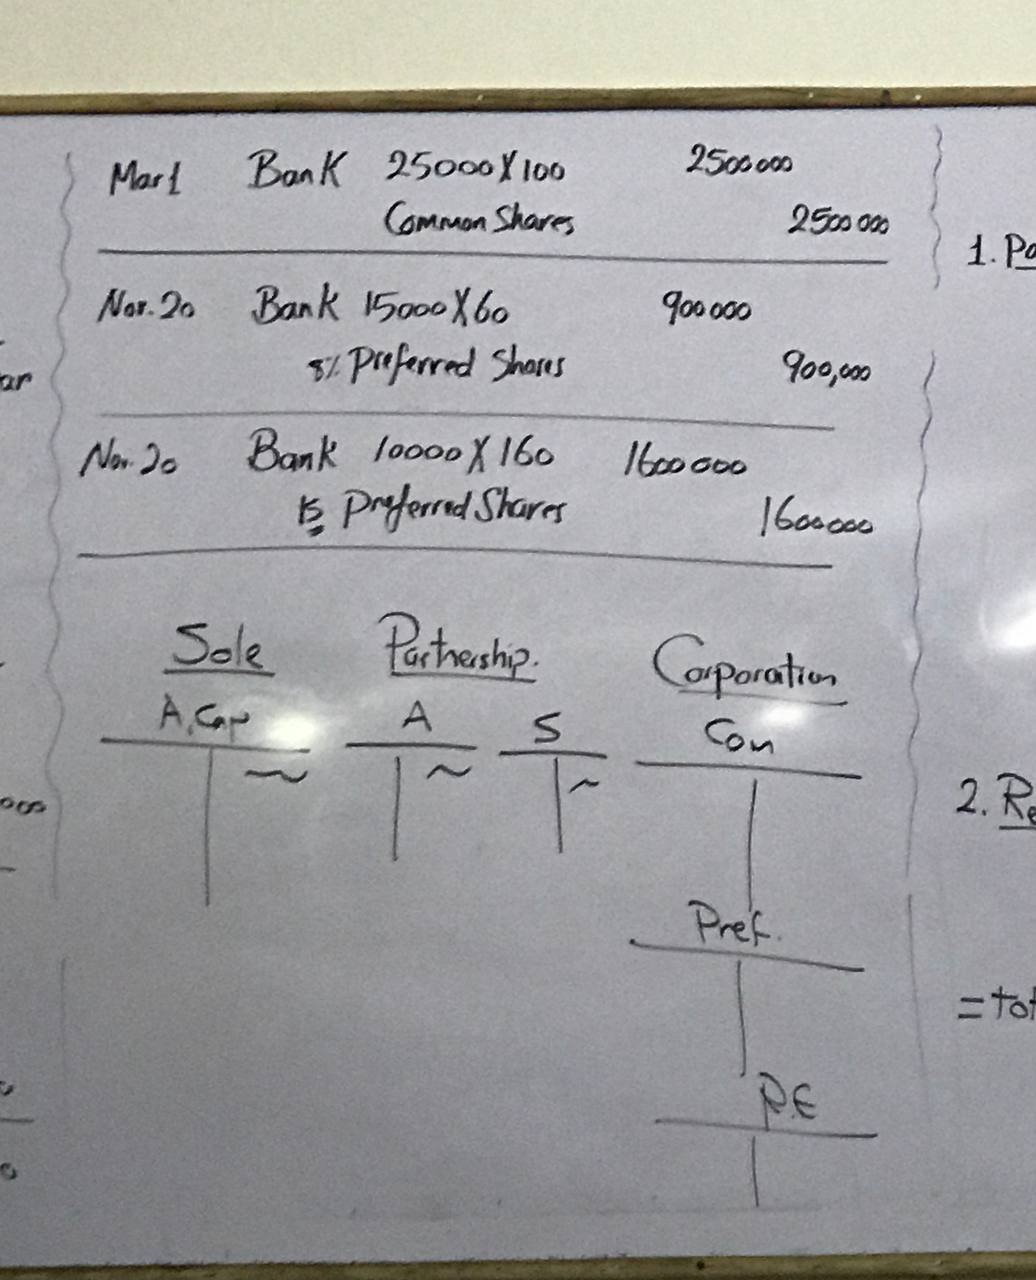 Mar 1 Bank 25000 X 100 2500000
Common Shares 2500000
Nov. 20 Bank 15000 X 60 900000
8% Preferred Shares 900,000
Nov. 20 Bank 10000 X 160 1600000
Preferred Shares 1600000
Sole Partnership. Corporation
A, Cap A S Com
Pref.
R.E
1. Pa
2. Re
= tot
ar